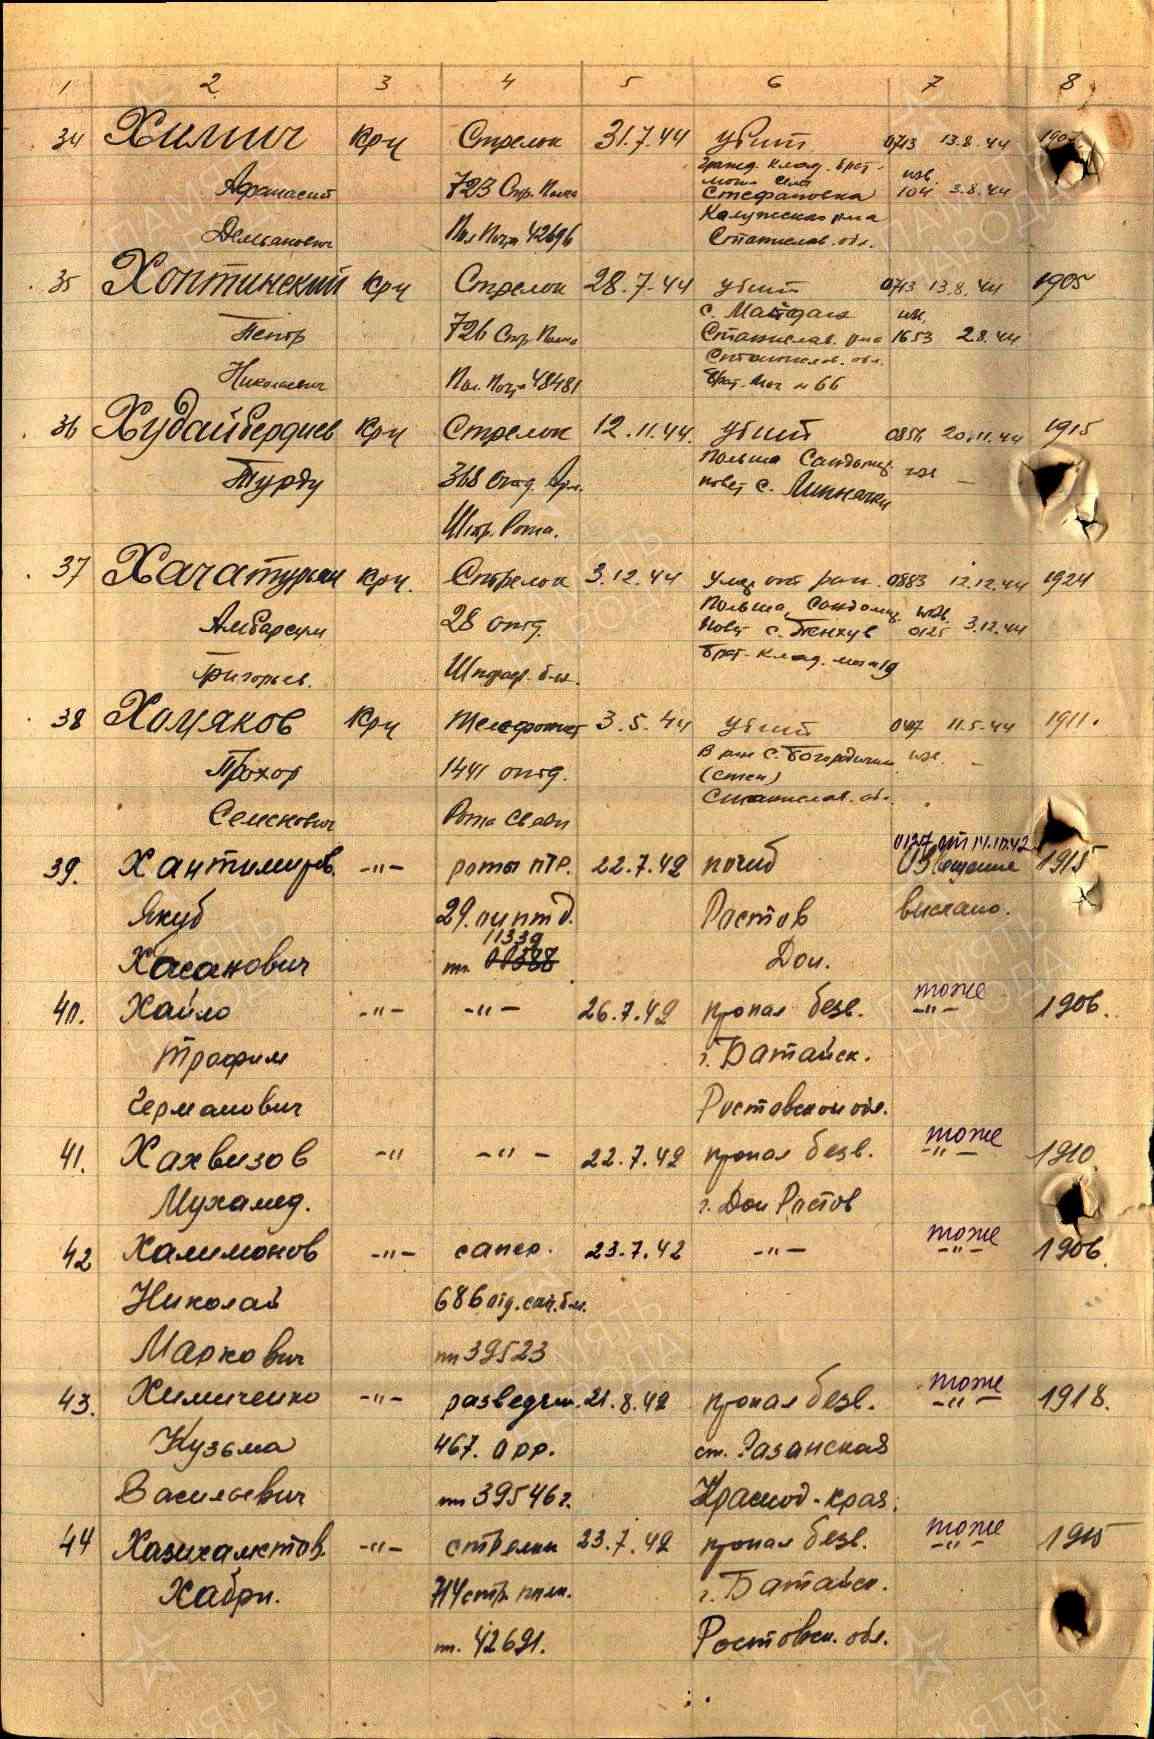 1 2 3 4 5 6 7 8
34 Химич Крц Стрелок 31.7.44 убит 0713 13.8.44
Гражд. клад. брат.
Афанасий 723 Стр. Полка Стефановка 104 3.8.44
Калушского р-на
Демьянович Пол Почт 42696 Станислав. обл.
35 Хоптинский Крц Стрелок 28.7.44 убит 0713 13.8.44 1905
с. Майдан изв.
Петр 726 Стр. Полка Станислав. р-на 1653 2.8.44
Станислав. обл.
Николаевич Пол. Почт 48481 брат. мог. н 66
36 Худайбердиев Крц Стрелок 12.11.44. убит 0856 20.11.44 1915
Польша Сандомир.
Турду 368 отд. Арм. повет с. Липнички
Штр. Рота.
37 Хачатурян Крц. Стрелок 3.12.44 Умер от ран. 0883 12.12.44 1924
Польша, Сандомир. изв.
Амбарсум 28 отд. Повет с. 0125 3.12.44
Григорьев. Штраф. б-н. Брат. клад. могила
38 Хомяков Крц Телефонист 3.5.44 убит 11.5.44 1911.
В р-не с. Богородичин изв. -
Прохор 1441 отд. (Стен)
Станислав. обл.
Семенович Рота Связи
0127 от 14.10.42
39. Хантимиров. -"- роты ПТР. 22.7.42 погиб Извещение 1915
Якуб 29. Ростов выслано.
11339
Хасанович пп. 00388 Дон.
тоже
40. Хайло -"- -"- 26.7.42 пропал безв. -"- 1906.
Трофим г. Батайск.
Германович Ростовской обл.
тоже
41. Хахвизов -"- -"- 22.7.42 пропал безв. -"- 1910.
Мухамед. г. Дон Ростов
тоже
42 Халимонов -"- сапер. 23.7.42 -"- -"- 1906.
Николай 686 отд. сап. б-н.
Маркович пп 39523
тоже
43. Химиченко -"- разведчик. 21.8.42 пропал безв. -"- 1918.
Кузьма 467. арр. ст. Разанская
Васильевич пп 39546 г. Краснод. края.
тоже
44 Хазихаметов. -"- стрелок 23.7.42 пропал безв. -"- 1915
Хабри. 714 стр. полк. г. Батайск.
пп. 42691. Ростовск. обл.
ПАМЯТЬ НАРОДА